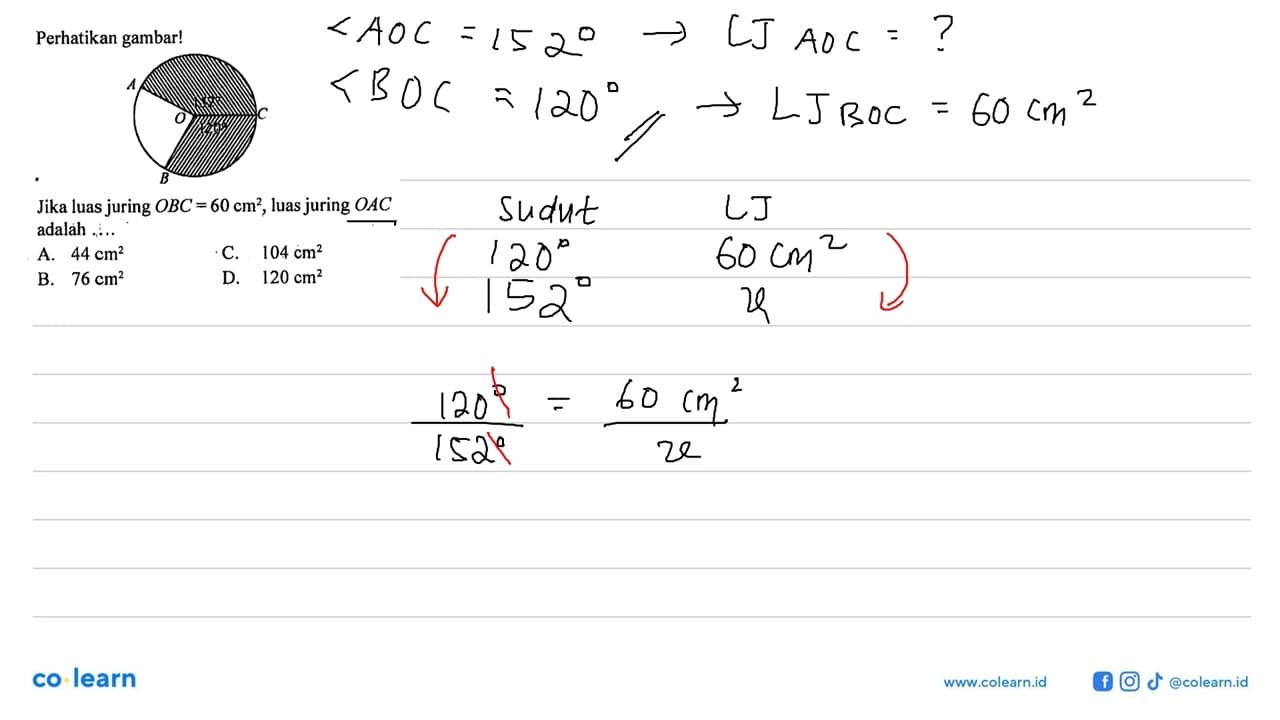 Perhatikan gambar!
A
O
C
120°
B
Jika luas juring OBC = 60 cm², luas juring OAC
adalah ....
A. 44 cm²
C. 104 cm²
B. 76 cm²
D. 120 cm²
<AOC = 152° → LJ AOC = ?
<BOC = 120° → LJ BOC = 60 cm²
Sudut LJ
120° 60 cm²
152° x
120° = 60 cm²
152° x
co learn
www.colearn.id
@colearn.id